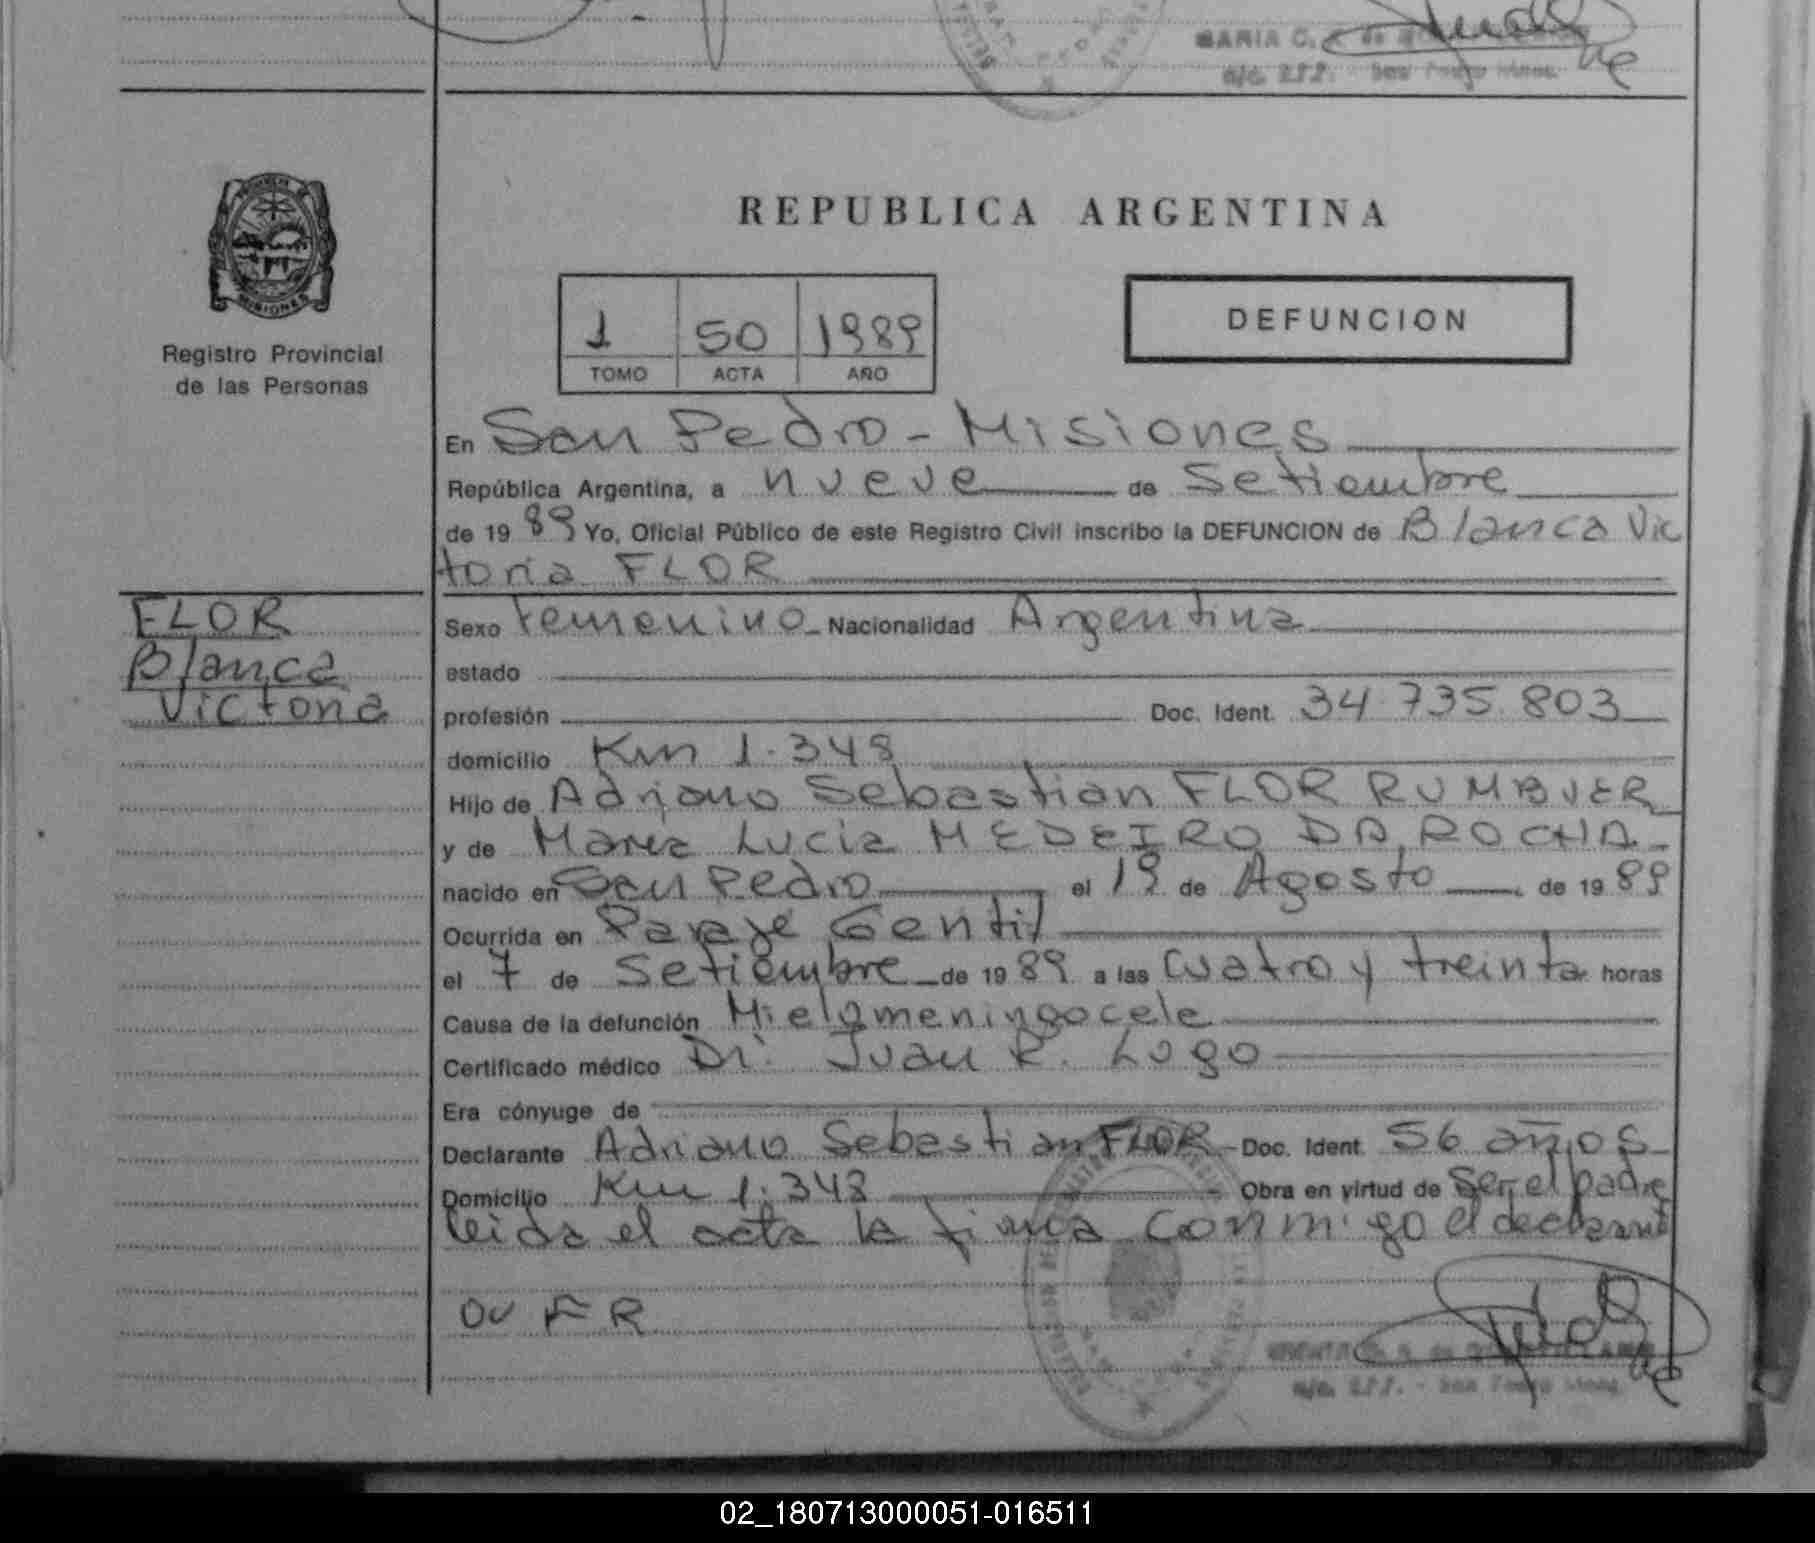 MARIA C.
a/c. R.P.P. - San Pedro Mnes.
REPUBLICA ARGENTINA
PROVINCIA DE
MISIONES
Registro Provincial
de las Personas
1 50 1989
TOMO ACTA AÑO
DEFUNCION
En San Pedro - Misiones
República Argentina, a nueve de Setiembre
de 19 89 Yo, Oficial Público de este Registro Civil inscribo la DEFUNCION de Blanca Vic
toria FLOR
FLOR
Blanca
Victoria
Sexo femenino Nacionalidad Argentina
estado
profesión Doc. Ident. 34.735.803
domicilio Km 1.348
Hijo de Adriano Sebastian FLOR RUMBUER
y de Maria Lucia MEDEIRO DA ROCHA
nacido en San Pedro el 19 de Agosto de 19 89
Ocurrida en Paraje Gentil
el 7 de Setiembre de 19 89 a las cuatro y treinta horas
Causa de la defunción Mielomeningocele
Certificado médico Dr. Juan R. Lugo
Era cónyuge de
Declarante Adriano Sebastian FLOR Doc. Ident. 56 años
Domicilio Km 1.348 Obra en virtud de ser el padre
leida el acta la firma conmigo el declarante
OV F R
a/c. R.P.P. - San Pedro Mnes.
02_180713000051-016511